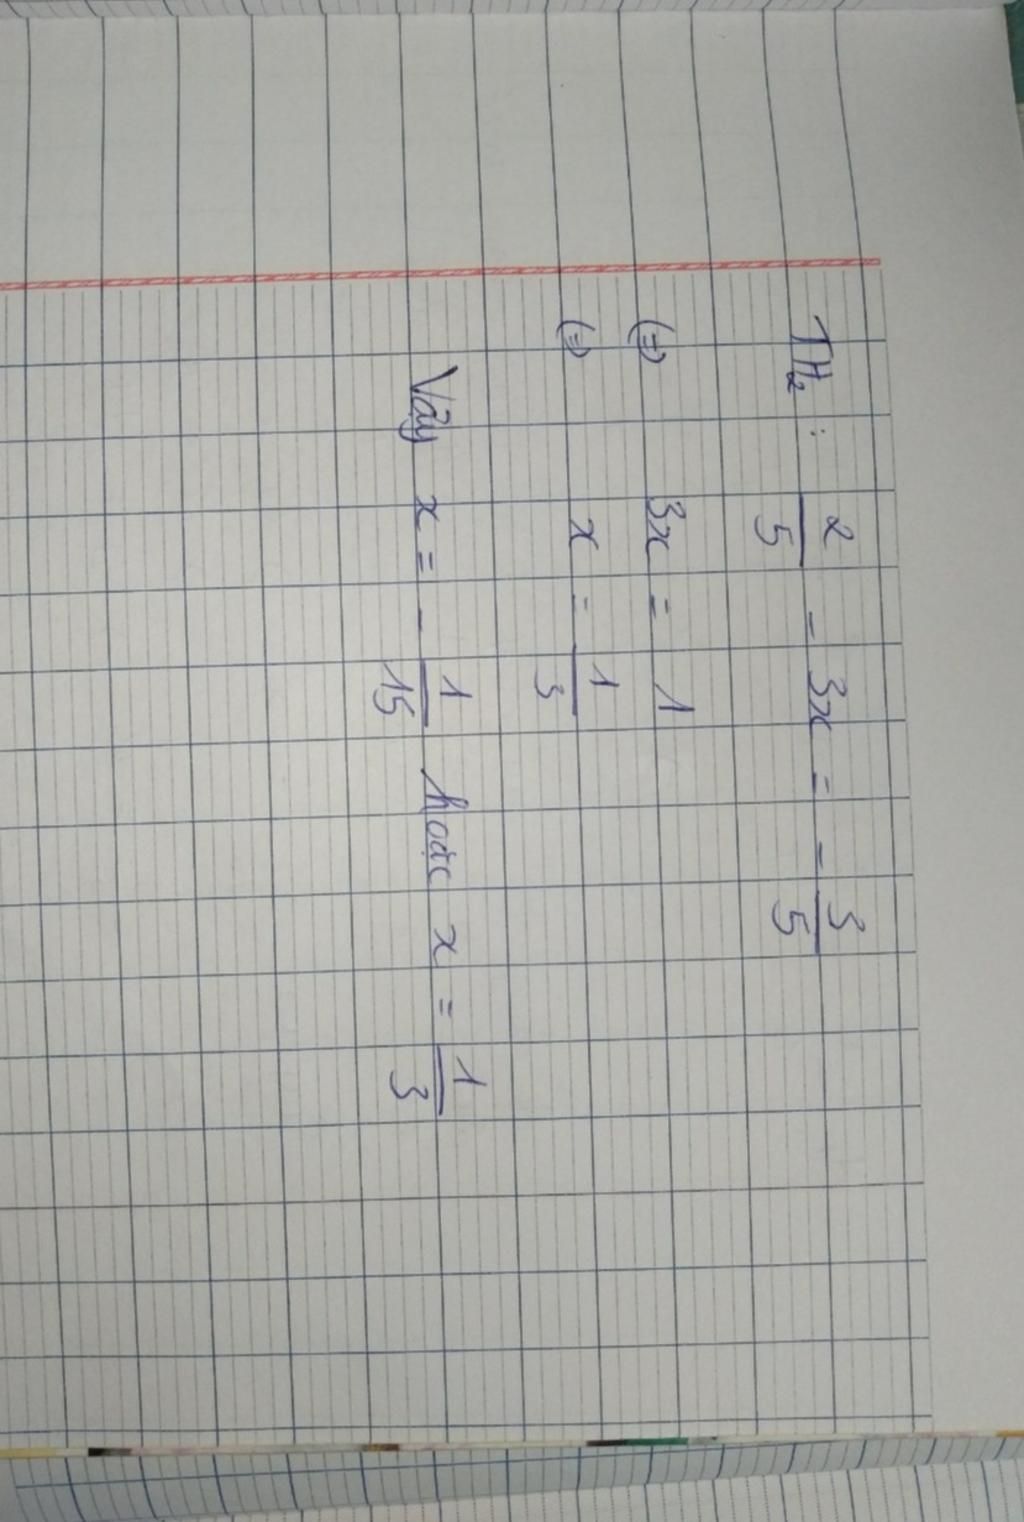 TH2 : 2/5 - 3x = - 3/5
(=) 3x = 1
(=) x = 1/3
Vậy x = - 1/15 hoặc x = 1/3